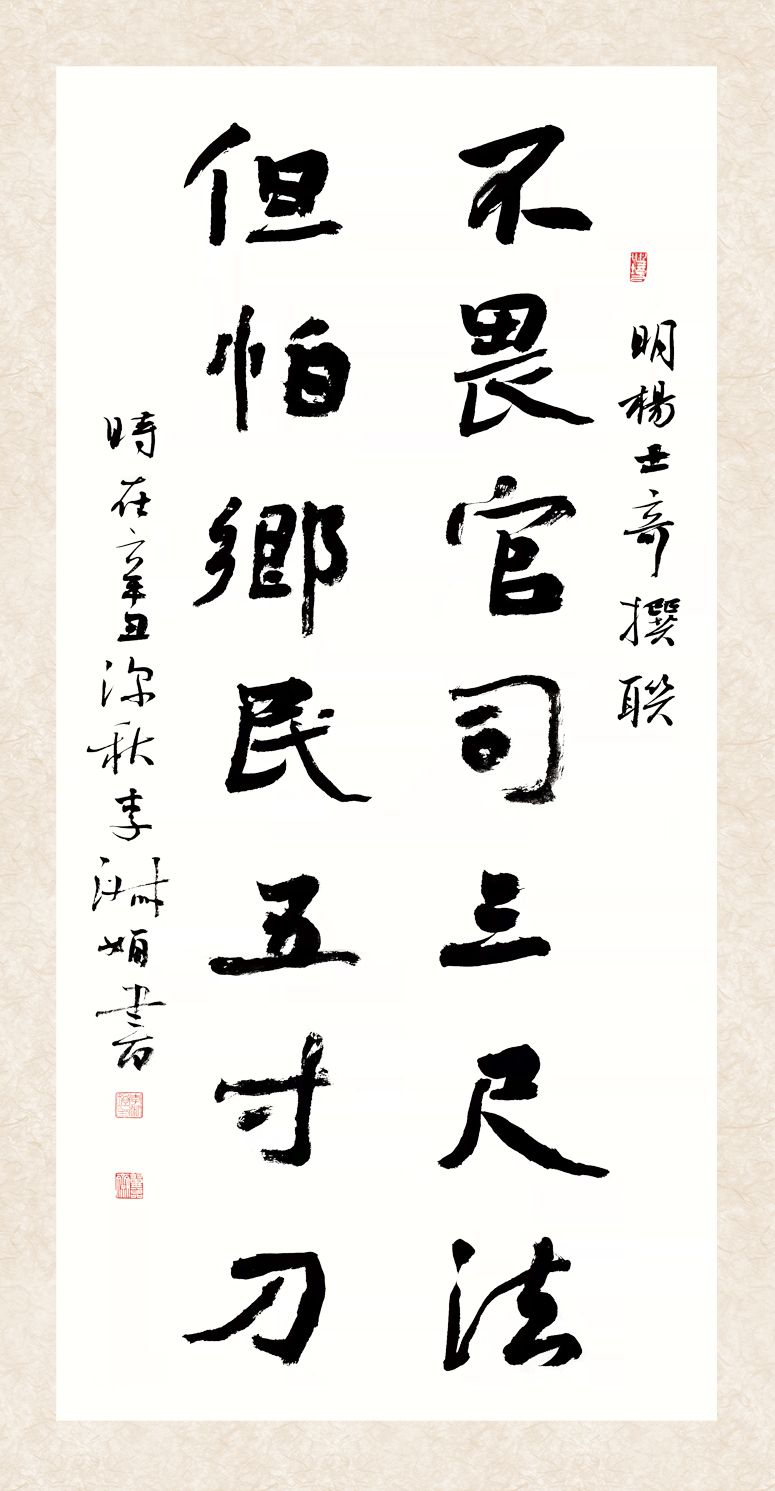 明楊士奇撰联
不畏官司三尺法
但怕鄉民五寸刀
時在辛丑深秋李淋娟書